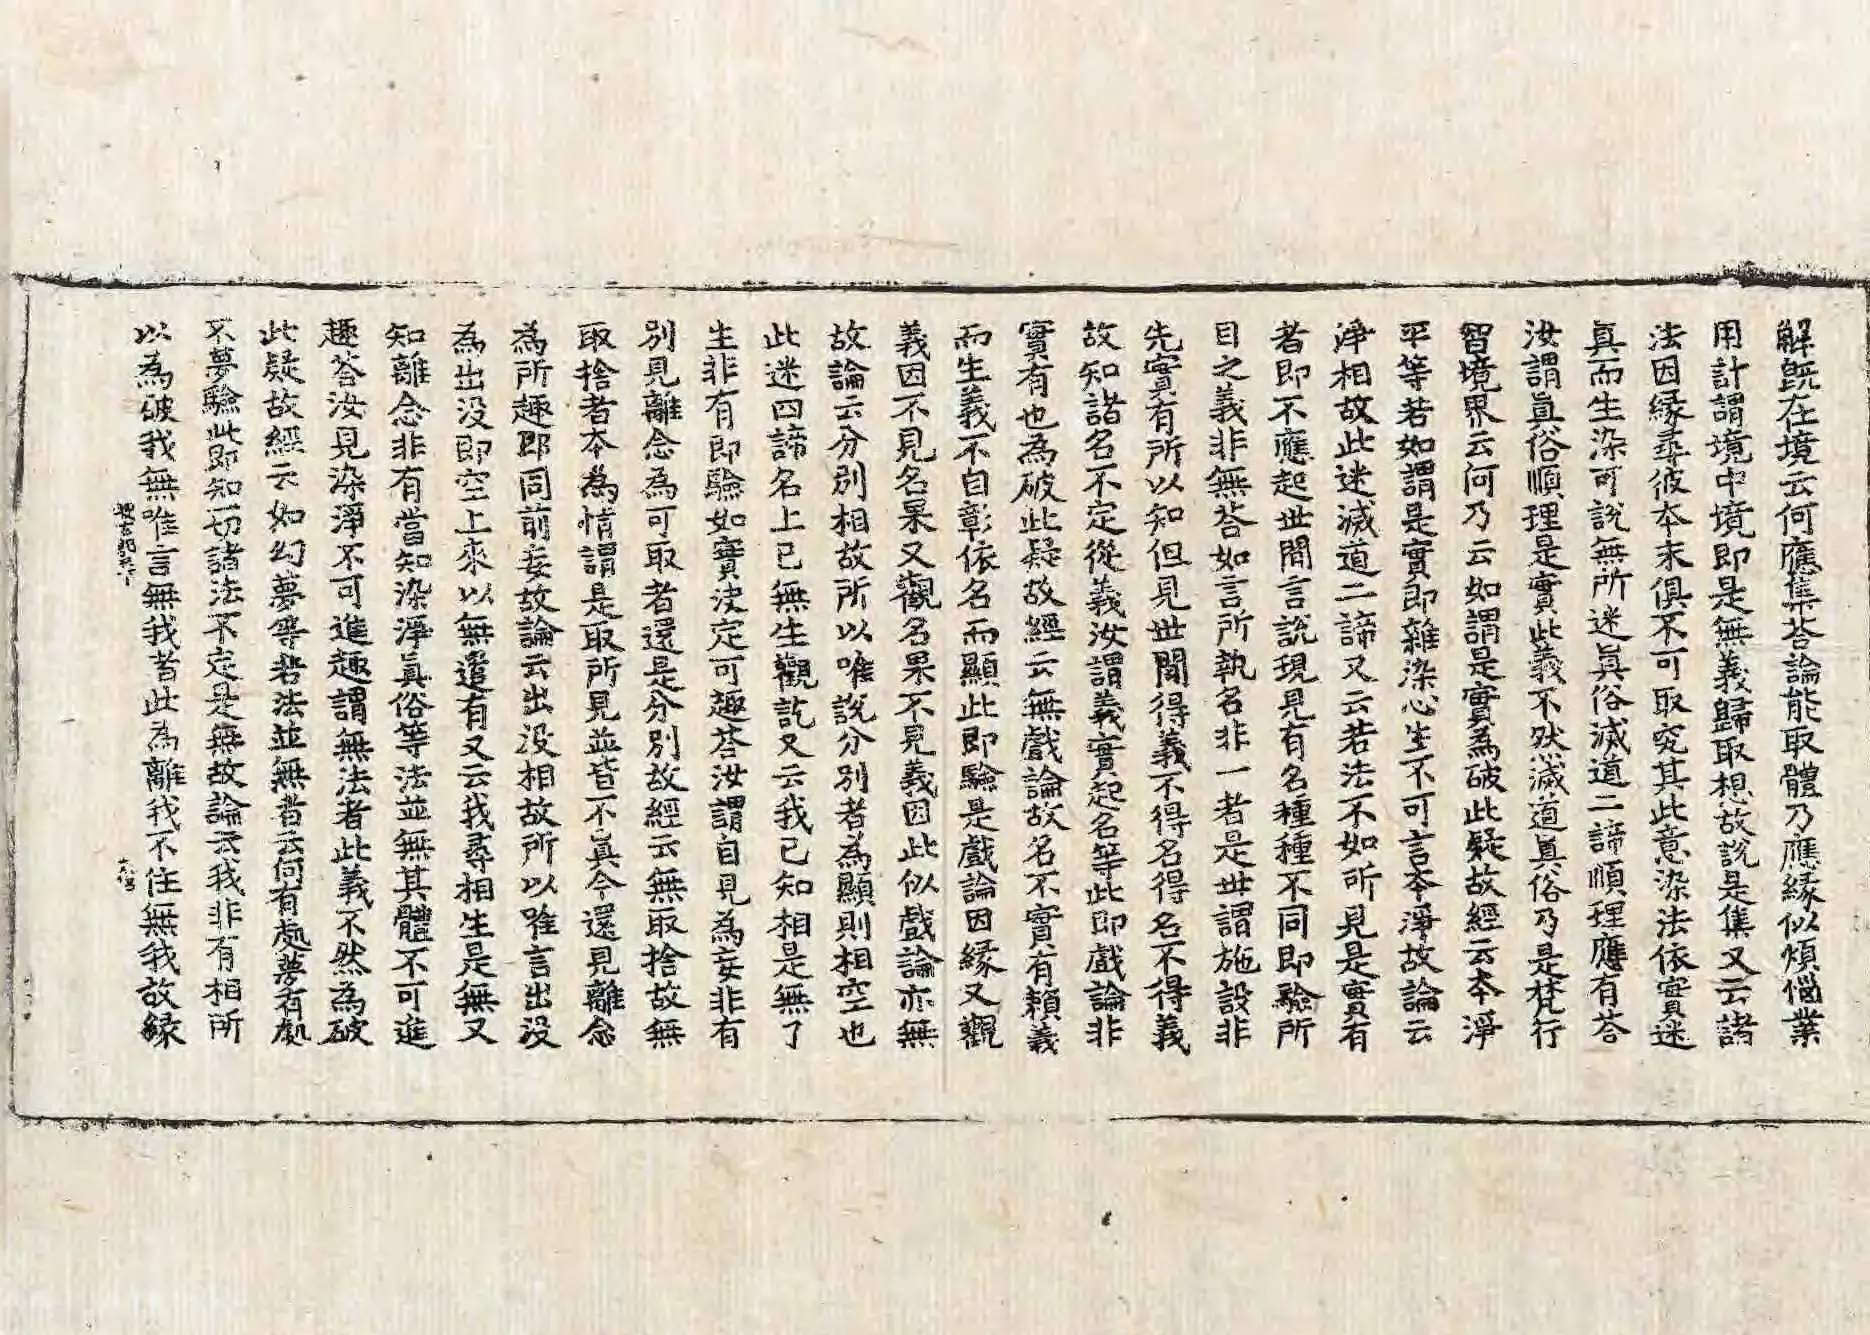 解旣在境云何應集荅論能取體乃應緣似煩惱業
用計謂境中境即是無義歸取想故說是集又云諸
法因緣尋彼本末俱不可取究其此意染法依實迷
真而生染可說無所迷眞俗滅道二諦順理應有荅
汝謂眞俗順理是實此義不然滅道眞俗乃是梵行
智境界云何乃云如謂是實為破此疑故經云本淨
平等若如謂是實即雜染心生不可言本淨故論云
淨相故此迷滅道二諦又云若法不如所見是實有
者即不應起世間言說現見有名種種不同即驗所
目之義非無荅如言所執名非一者是世謂施設非
先實有所以知但見世間得義不得名得名不得義
故知諸名不定從義汝謂義實起名等此即戲論非
實有也為破此疑故經云無戲論故名不實有賴義
而生義不自彰依名而顯此即驗是戲論因緣又觀
義因不見名果又觀名果不見義因此似戲論亦無
故論云分別相故所以唯說分別者為顯則相空也
此迷四諦名上已無生觀訖又云我已知相是無了
生非有即驗如實決定可趣荅汝謂自見為妄非有
別見離念為可取者還是分別故經云無取捨故無
取捨者本為情謂是取所見並皆不眞今還見離念
為所趣即同前妄故論云出没相故所以唯言出没
為出没即空上來以無遣有又云我尋相生是無又
知離念非有當知染淨眞俗等法並無其體不可進
趣荅汝見染淨不可進趣謂無法者此義不然為破
此疑故經云如幻夢等若法並無者云何有處夢有處
不夢驗此即知一切諸法不定是無故論云我非有相所
以為破我無唯言無我者此為離我不住無我故緣